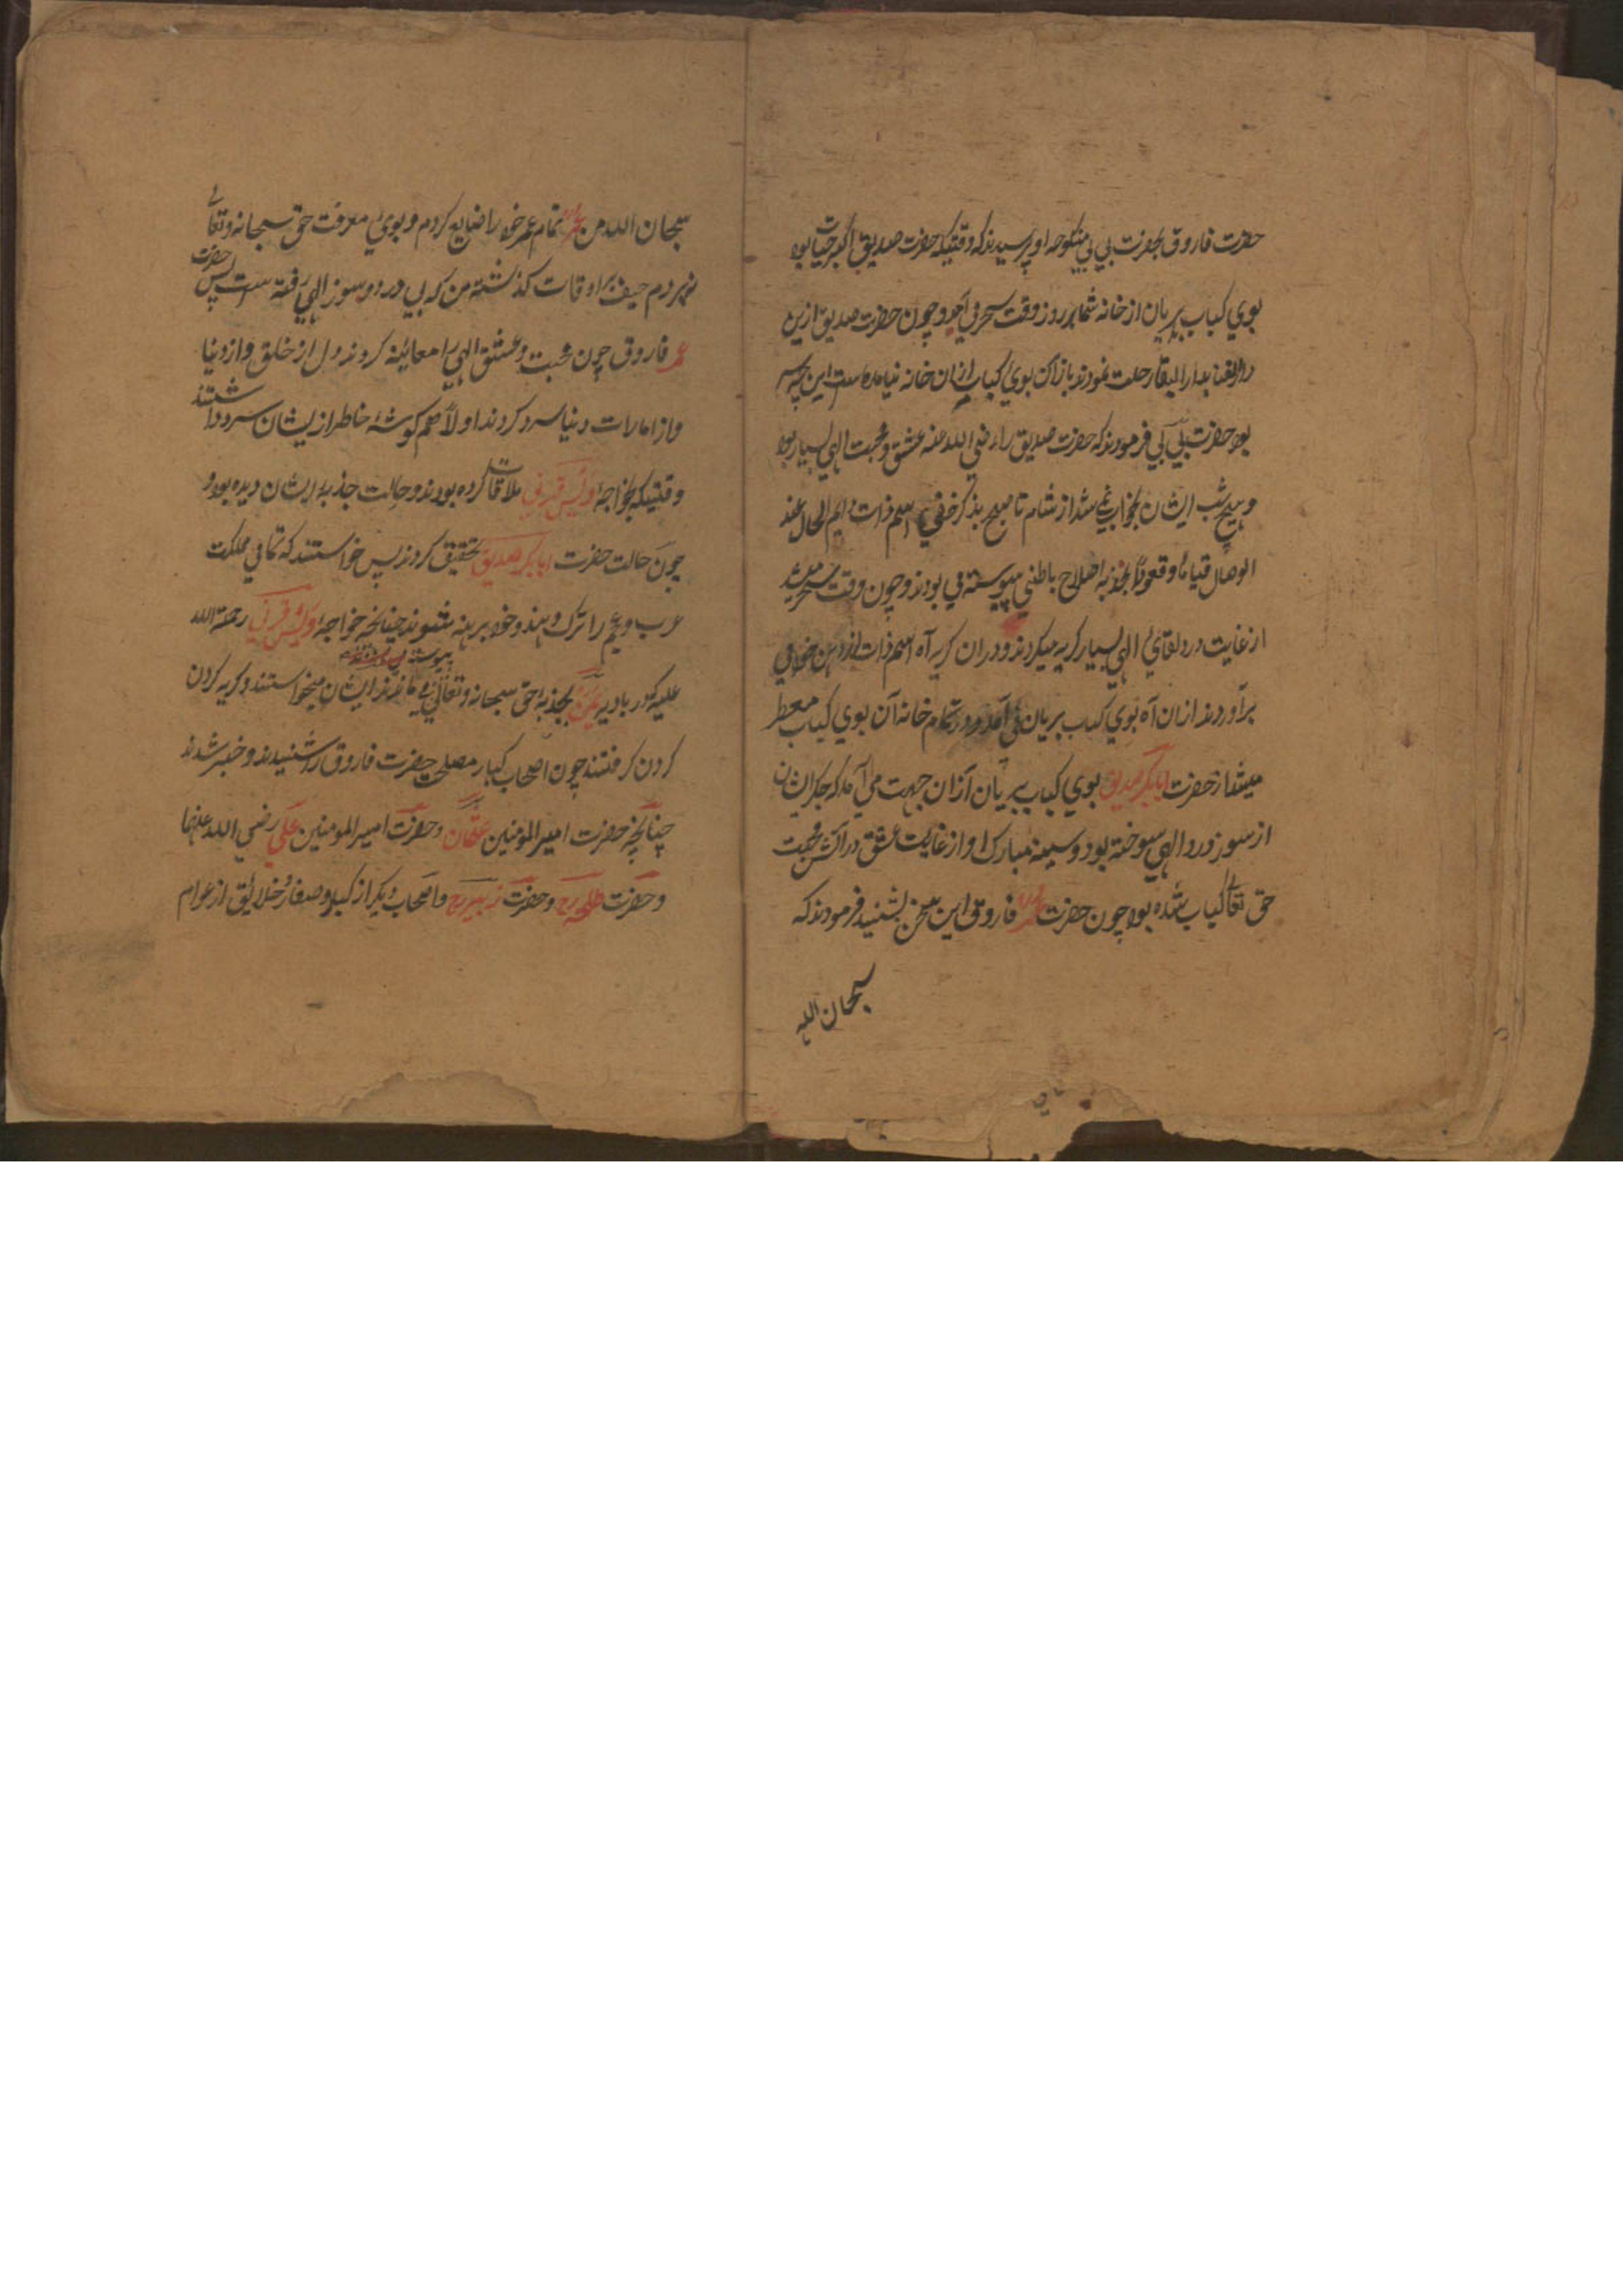 حضرت فاروق بحضرت بی بی منکوحه او پرسیدند که وقتیکه حضرت صدیق اکبر حیات بود
بوی کباب بریان از خانه شما هر روز وقت سحر می آمد و چون حضرت صدیق ازین
دار الفنا بدار البقا رحلت نمودند باز آن بوی کباب ازان خانه نیامده است این چه سر
بود حضرت بی بی فرمودند که حضرت صدیق را رضی الله عنه عشق و محبت الهی بسیار بود
و هیچ شب ایشان بخواب نمی شد از شام تا صبح بذکر خفی اسم ذات دایم الحال عند
الوصال قیاما و قعودا بجذبه اصلاح باطنی پیوسته می بودند و چون وقت سحر میشد
از غایت درد لقای الهی بسیار کریه میکردند و دران کریه آه اسم ذات از دهن خود می
برآوردند ازان آه بوی کباب بریان می آمد و در تمام خانه آن بوی کباب معطر
میشد از حضرت ابابکر صدیق بوی کباب بریان ازان جهت می آمد که جکر ایشان
از سوز درد الهی سوخته بود و سینه مبارک او از غایت عشق در آتش محبت
حق تعالی کباب شده بود چون حضرت عمر فاروق این سخن بشنید فرمودند که
سبحان الله
سبحان الله من عمر تمام عمر خود را ضایع کردم و بوی معرفت حق سبحانه و تعالی
نبردم حیف بر اوقات کذشته من که بی درد و سوز الهی رفته است پس حضرت
عمر فاروق چون محبت و عشق الهی را معاینه کردند دل از خلق و از دنیا
و از امارات دنیا سرد کردند اولا هم کوشهٔ خاطر ازیشان سرد داشتند
وقتیکه بخواجهٔ ویس قرنی ملاقات کرده بودند و حالت جذبه ایشان دیده بود و
چون حالت حضرت ابابکر صدیق تحقیق کردند پس خواستند که تمامی مملکت
عرب و عجم را ترک دهند و خود برهنه شوند چنانچه خواجهٔ ویس قرنی رحمة الله
علیه که در بادیه یمن بجذبه حق سبحانه و تعالی پیوسته می ماندند ایشان میخواستند و کریه کردن
کردن کرفتند چون اصحاب کبار مصلحت حضرت فاروق را شنیدند و خبر شدند
چنانچه حضرت امیر المومنین عثمان و حضرت امیر المومنین علی رضی الله عنهما
و حضرت طلحه رض و حضرت زبیر رض و اصحاب دیکر از کبار و صغار خلایق از عوام